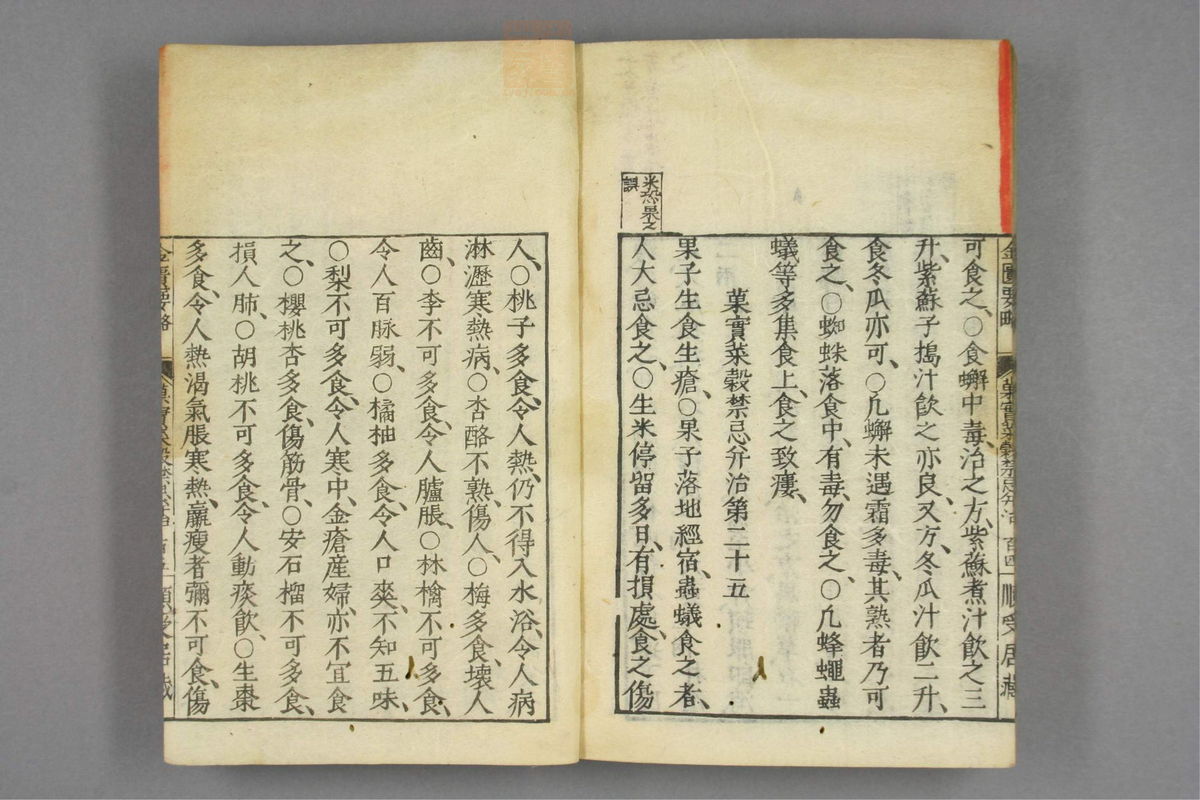 可食之、○食蠏中毒、治之方、紫蘇煮汁飲之三
升、紫蘇子搗汁飲之亦良、又方、冬瓜汁飲二升、
食冬瓜亦可、○凡蠏未遇霜多毒、其熟者乃可
食之、○蜘蛛落食中、有毒、勿食之、○凡蜂蠅蟲
蟻等多集食上、食之致瘻、
菓實菜穀禁忌并治第二十五
果子生食生瘡、○果子落地經宿、蟲蟻食之者、
米恐果之
誤
人大忌食之、○生米停留多日、有損處、食之傷
人、○桃子多食、令人熱、仍不得入水浴、令人病
淋瀝寒熱病、○杏酪不熟、傷人、○梅多食、壞人
齒、○李不可多食、令人臚脹、○林檎不可多食、
令人百脉弱、○橘柚多食、令人口爽、不知五味、
○梨不可多食、令人寒中、金瘡産婦、亦不宜食
之、○櫻桃杏多食、傷筋骨、○安石榴不可多食、
損人肺、○胡桃不可多食、令人動痰飲、○生棗
多食、令人熱渴氣脹寒熱、羸瘦者彌不可食、傷